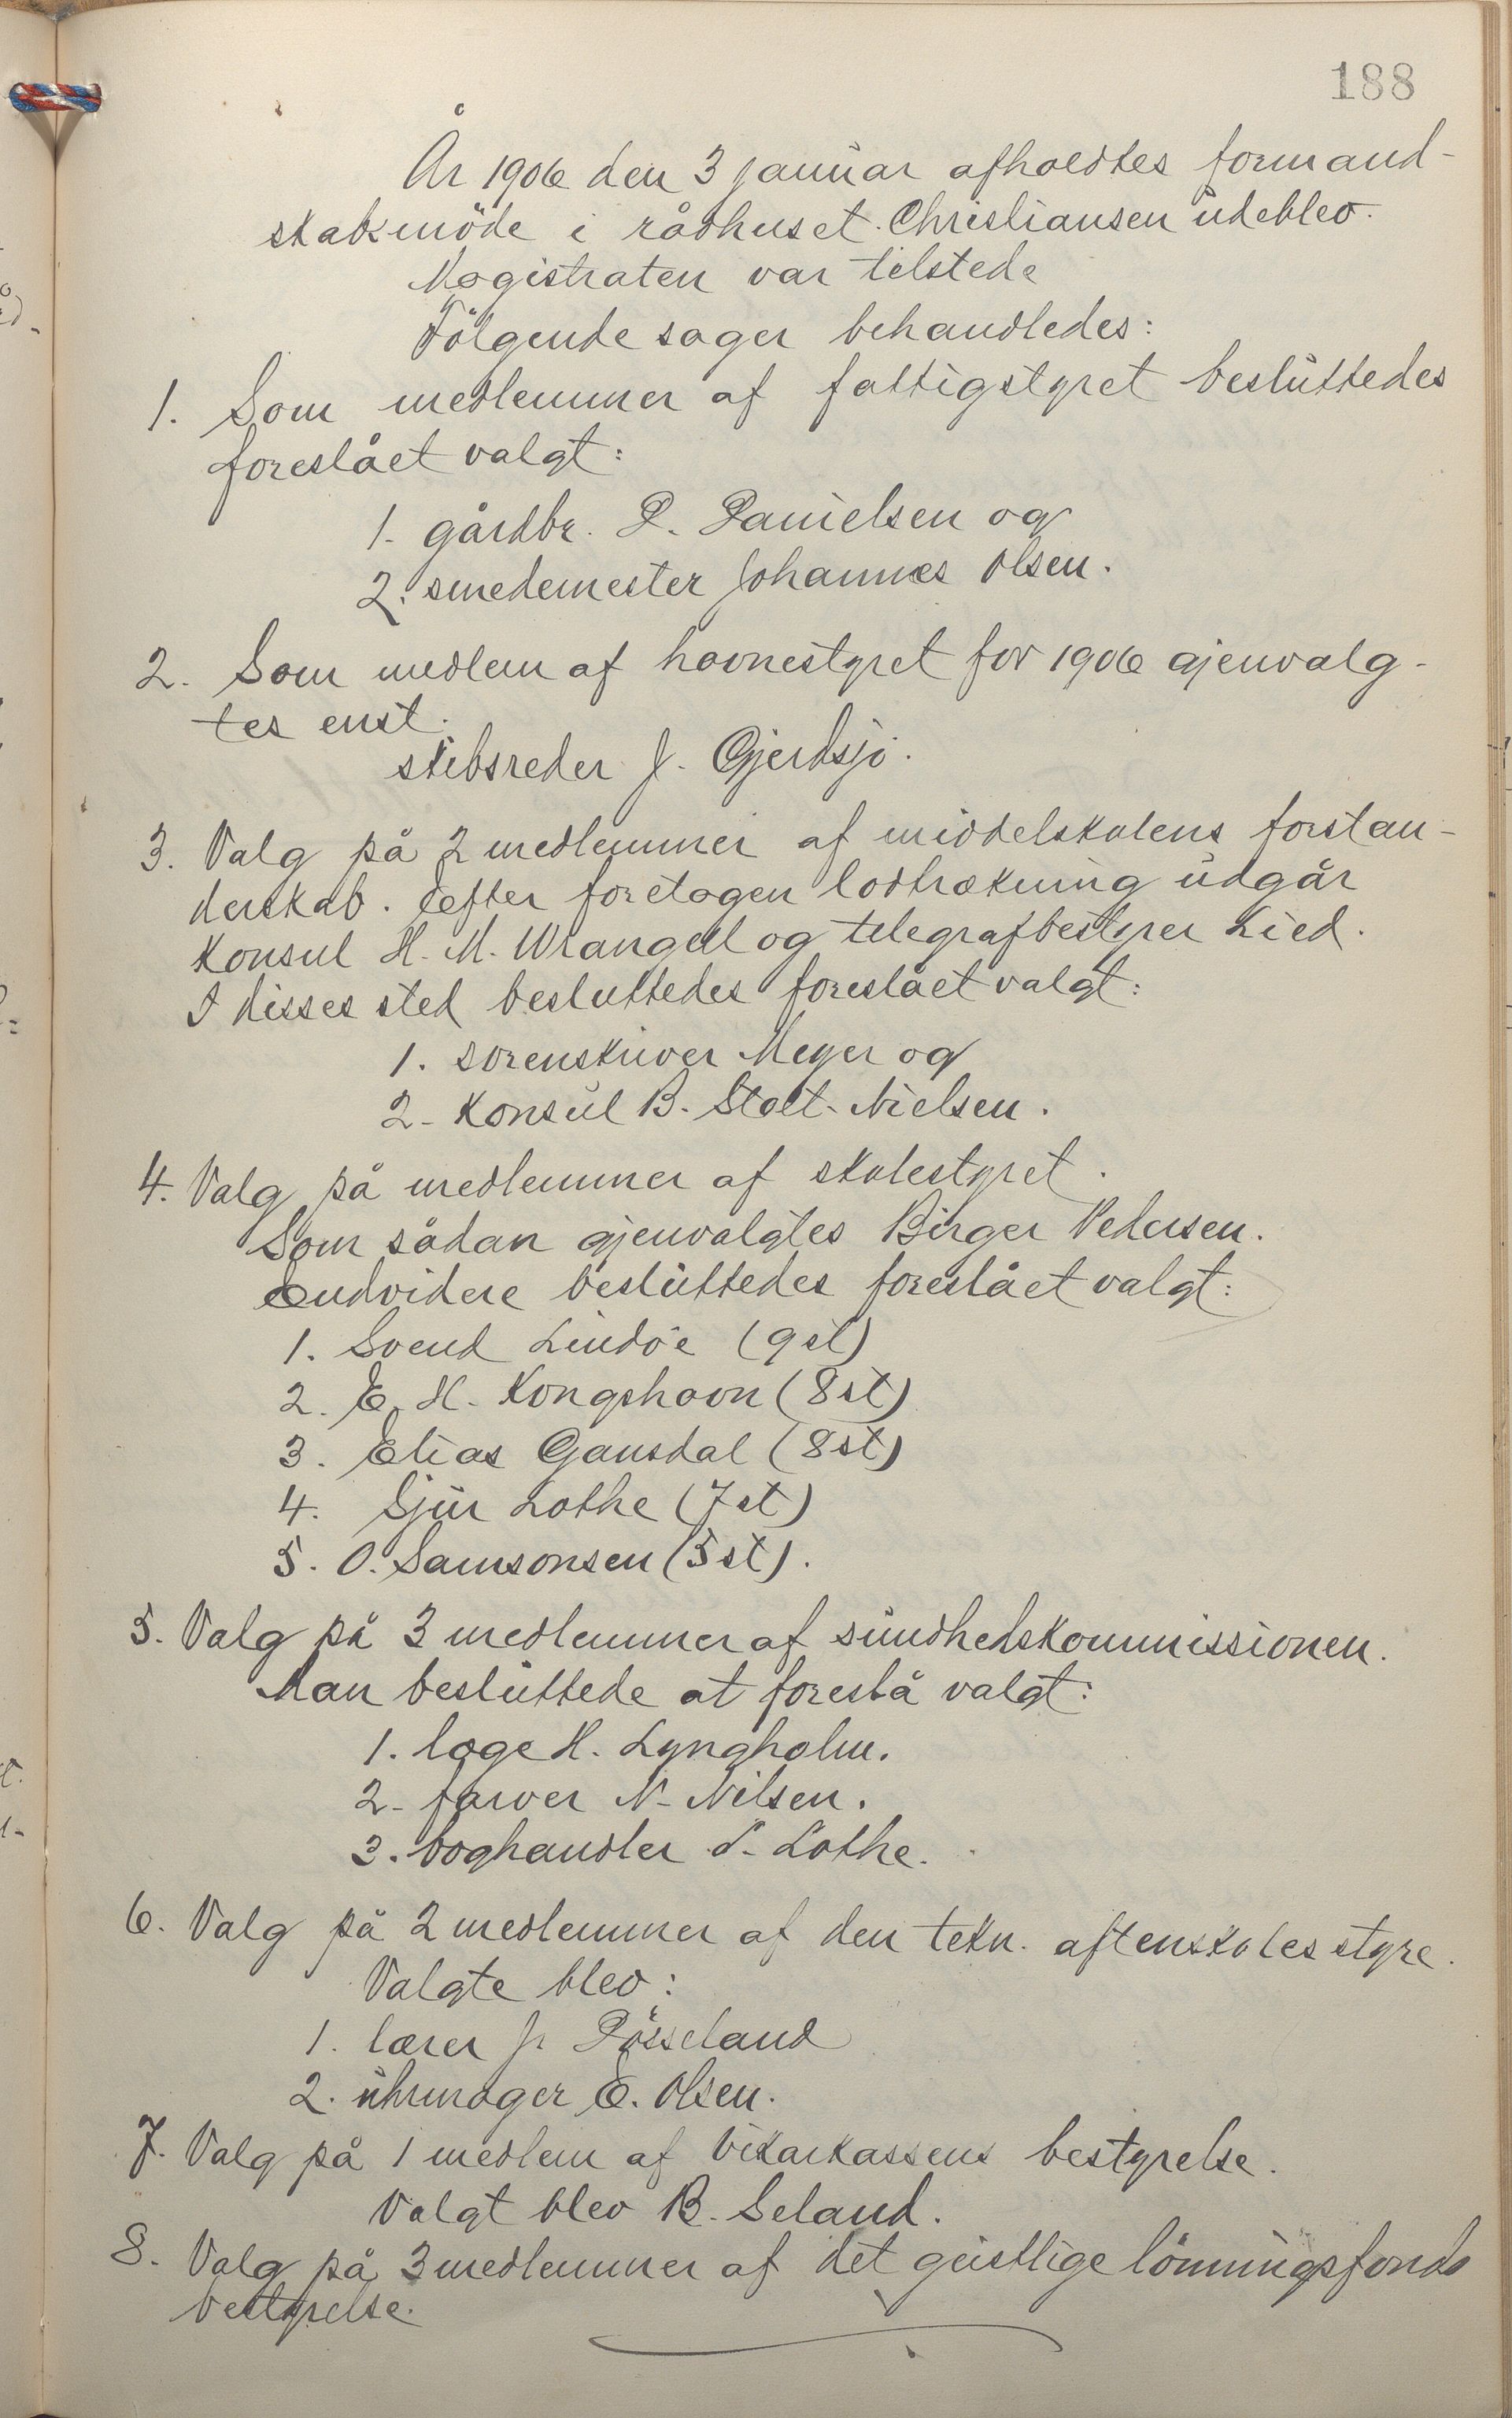 188
År 1906 den 3 januar afholdtes formand-
skabsmöde i rådhuset. Christiansen udeblev.
Magistraten var tilstede
Fölgende sager behandledes:
1. Som medlemmer af fattigstyret besluttedes
foreslået valgt:
1. gårdbr. D. Danielsen og
2. smedemester Johannes Olsen.
2. Som medlem af havnestyret for 1906 gjenvalg-
tes enst.
skibsreder J. Gjerdsjö.
3. Valg på 2 medlemmer af middelskolens forstan-
derskab. Efter foretagen lodtrækning udgår
konsul H. M. Wrangell og telegrafbestyrer Lied.
I disses sted besluttedes foreslået valgt:
1. sorenskriver Meyer og
2. konsul B. Stolt-Nielsen.
4. Valg på medlemmer af skolestyret.
Som sådan gjenvalgtes Birger Pedersen.
Endvidere besluttedes foreslået valgt:
1. Svend Lindöe (9 st)
2. E. H. Kongshavn (8 st)
3. Elias Gausdal (8 st)
4. Sjur Lothe (7 st)
5. O. Samsonsen (5 st).
5. Valg på 3 medlemmer af sundhedskommissionen.
Man besluttede at foreslå valgt:
1. læge H. Lyngholm.
2. farver N. Nilsen.
3. boghandler S. Lothe.
6. Valg på 2 medlemmer af den tekn. aftenskoles styre.
Valgte blev:
1. lærer J. Dösseland
2. uhrmager E. Olsen.
7. Valg på 1 medlem af vikarkassens bestyrelse.
Valgt blev B. Seland.
8. Valg på 3 medlemmer af det geistlige lönningsfonds
bestyrelse.